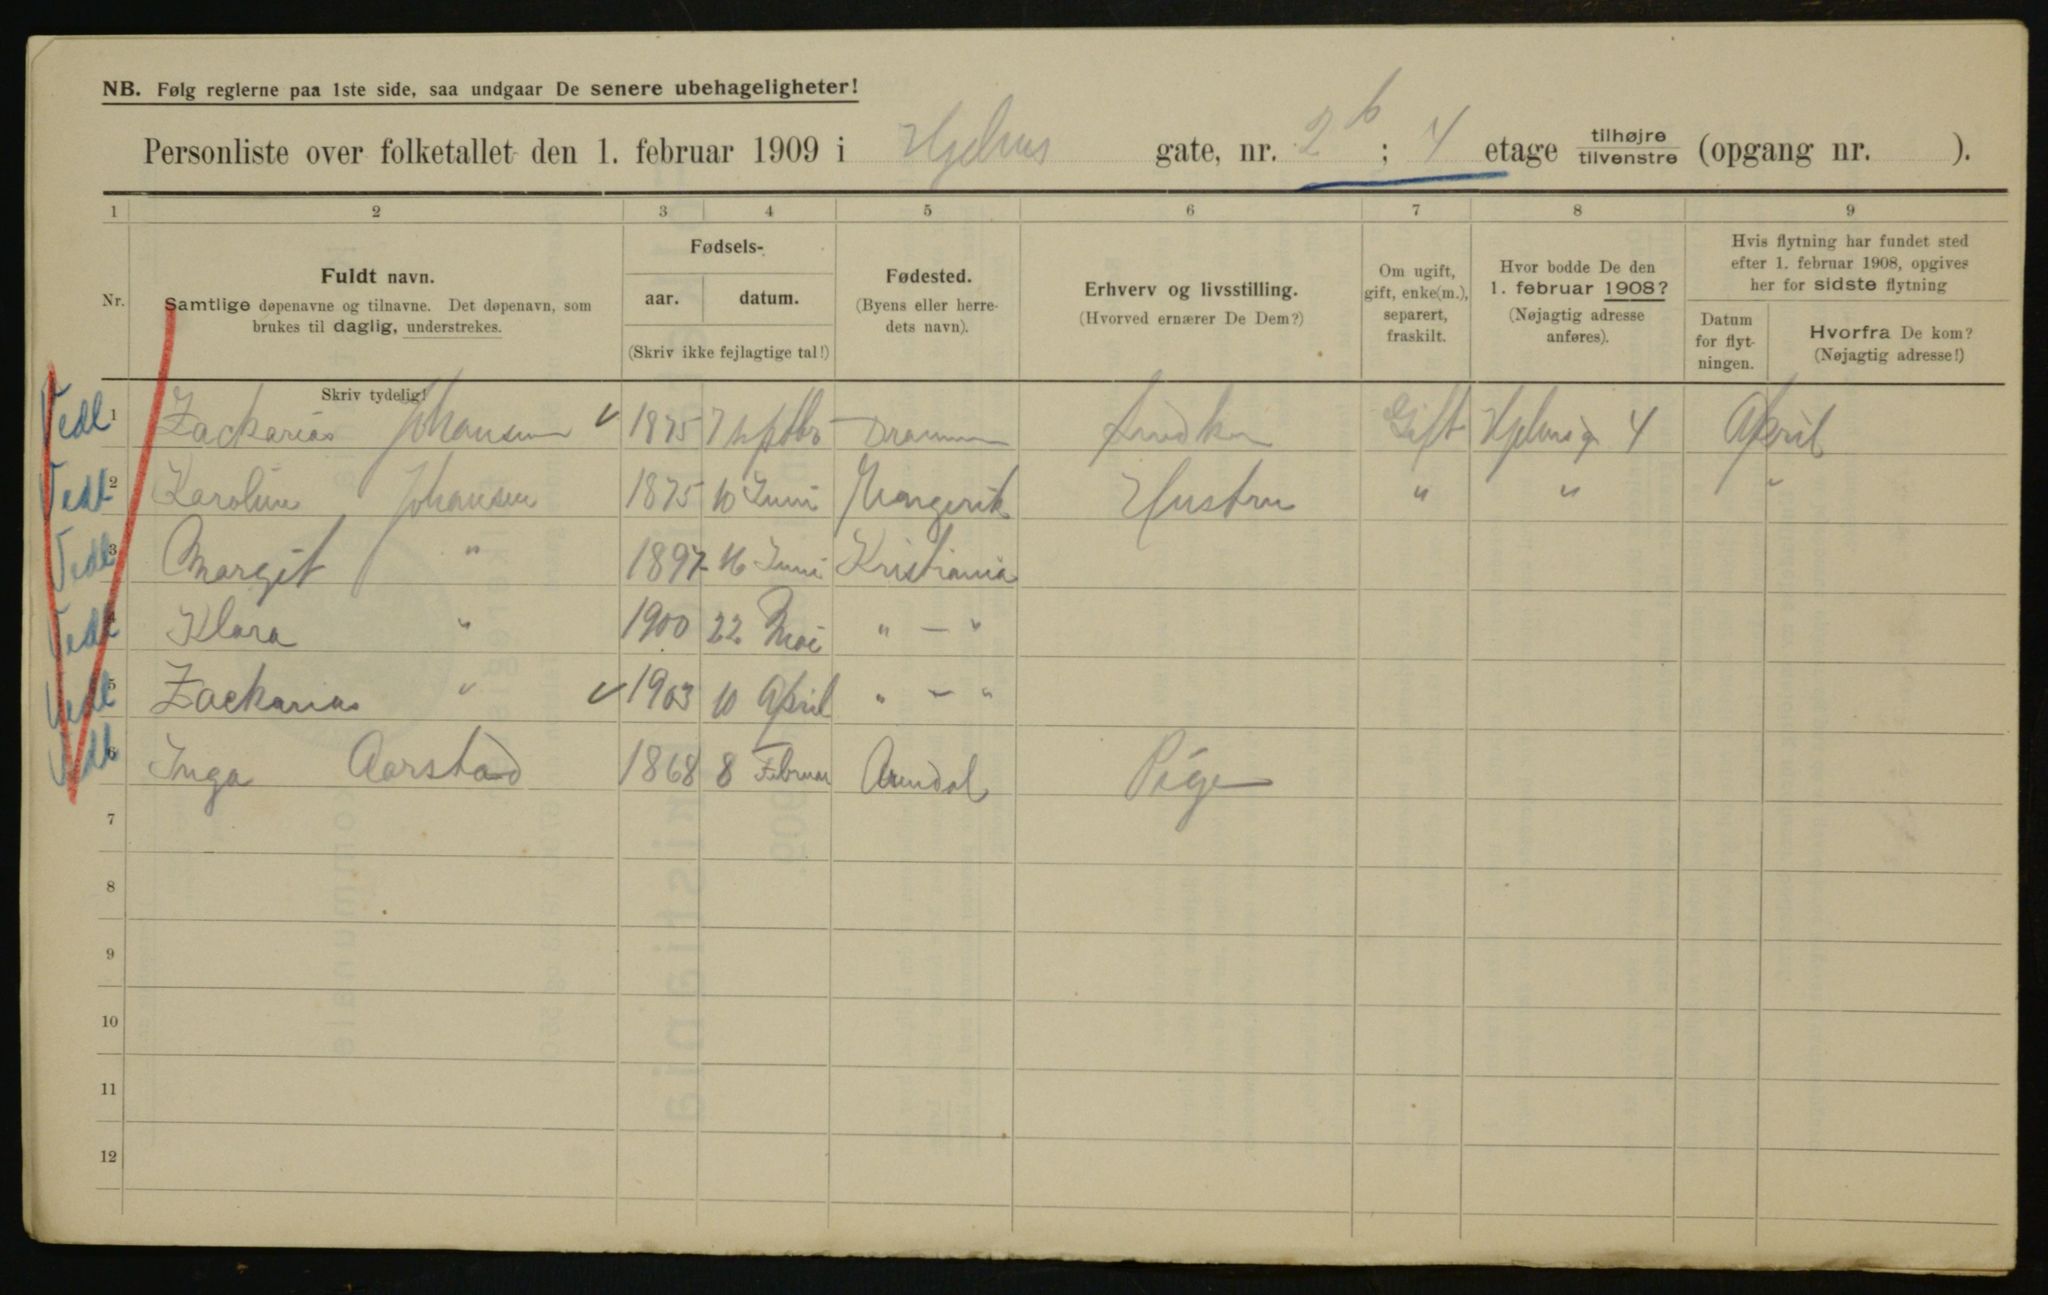 NB. Følg reglerne paa 1ste side, saa undgaar De senere ubehageligheter!
Personliste over folketallet den 1. februar 1909 i gate, nr. 2b ; 4 etage tilhøjre tilvenstre (opgang nr. ).
1 2 3 4 5 6 7 8 9
Nr.
Fuldt navn.
Samtlige døpenavne og tilnavne. Det døpenavn, som
brukes til daglig, understrekes.
Skriv tydelig!
Fødsels-
aar. datum.
(Skriv ikke fejlagtige tal!)
Fødested.
(Byens eller herre-
dets navn).
Erhverv og livsstilling.
(Hvorved ernærer De Dem?)
Om ugift,
gift, enke(m.),
separert,
fraskilt.
Hvor bodde De den
1. februar 1908?
(Nøjagtig adresse
anføres).
Hvis flytning har fundet sted
efter 1. februar 1908, opgives
her for sidste flytning
Datum
for flyt-
ningen.
Hvorfra De kom?
(Nøjagtig adresse!)
Vedl 1 Zackarias Johansen ✓ 1875 7 Gift 4 April
Vedl 2 Karoline Johansen 1875 10 Juni Hustru " " "
Vedl 3 Margit " 1897 16 Juni Kristiania
Vedl 4 Klara " 1900 22 Mai " — "
Vedl 5 Zackarias " ✓ 1903 10 April " — "
Vedl 6 Inga Aarstad 1868 8 Februar Arendal Pige
7
8
9
10
11
12